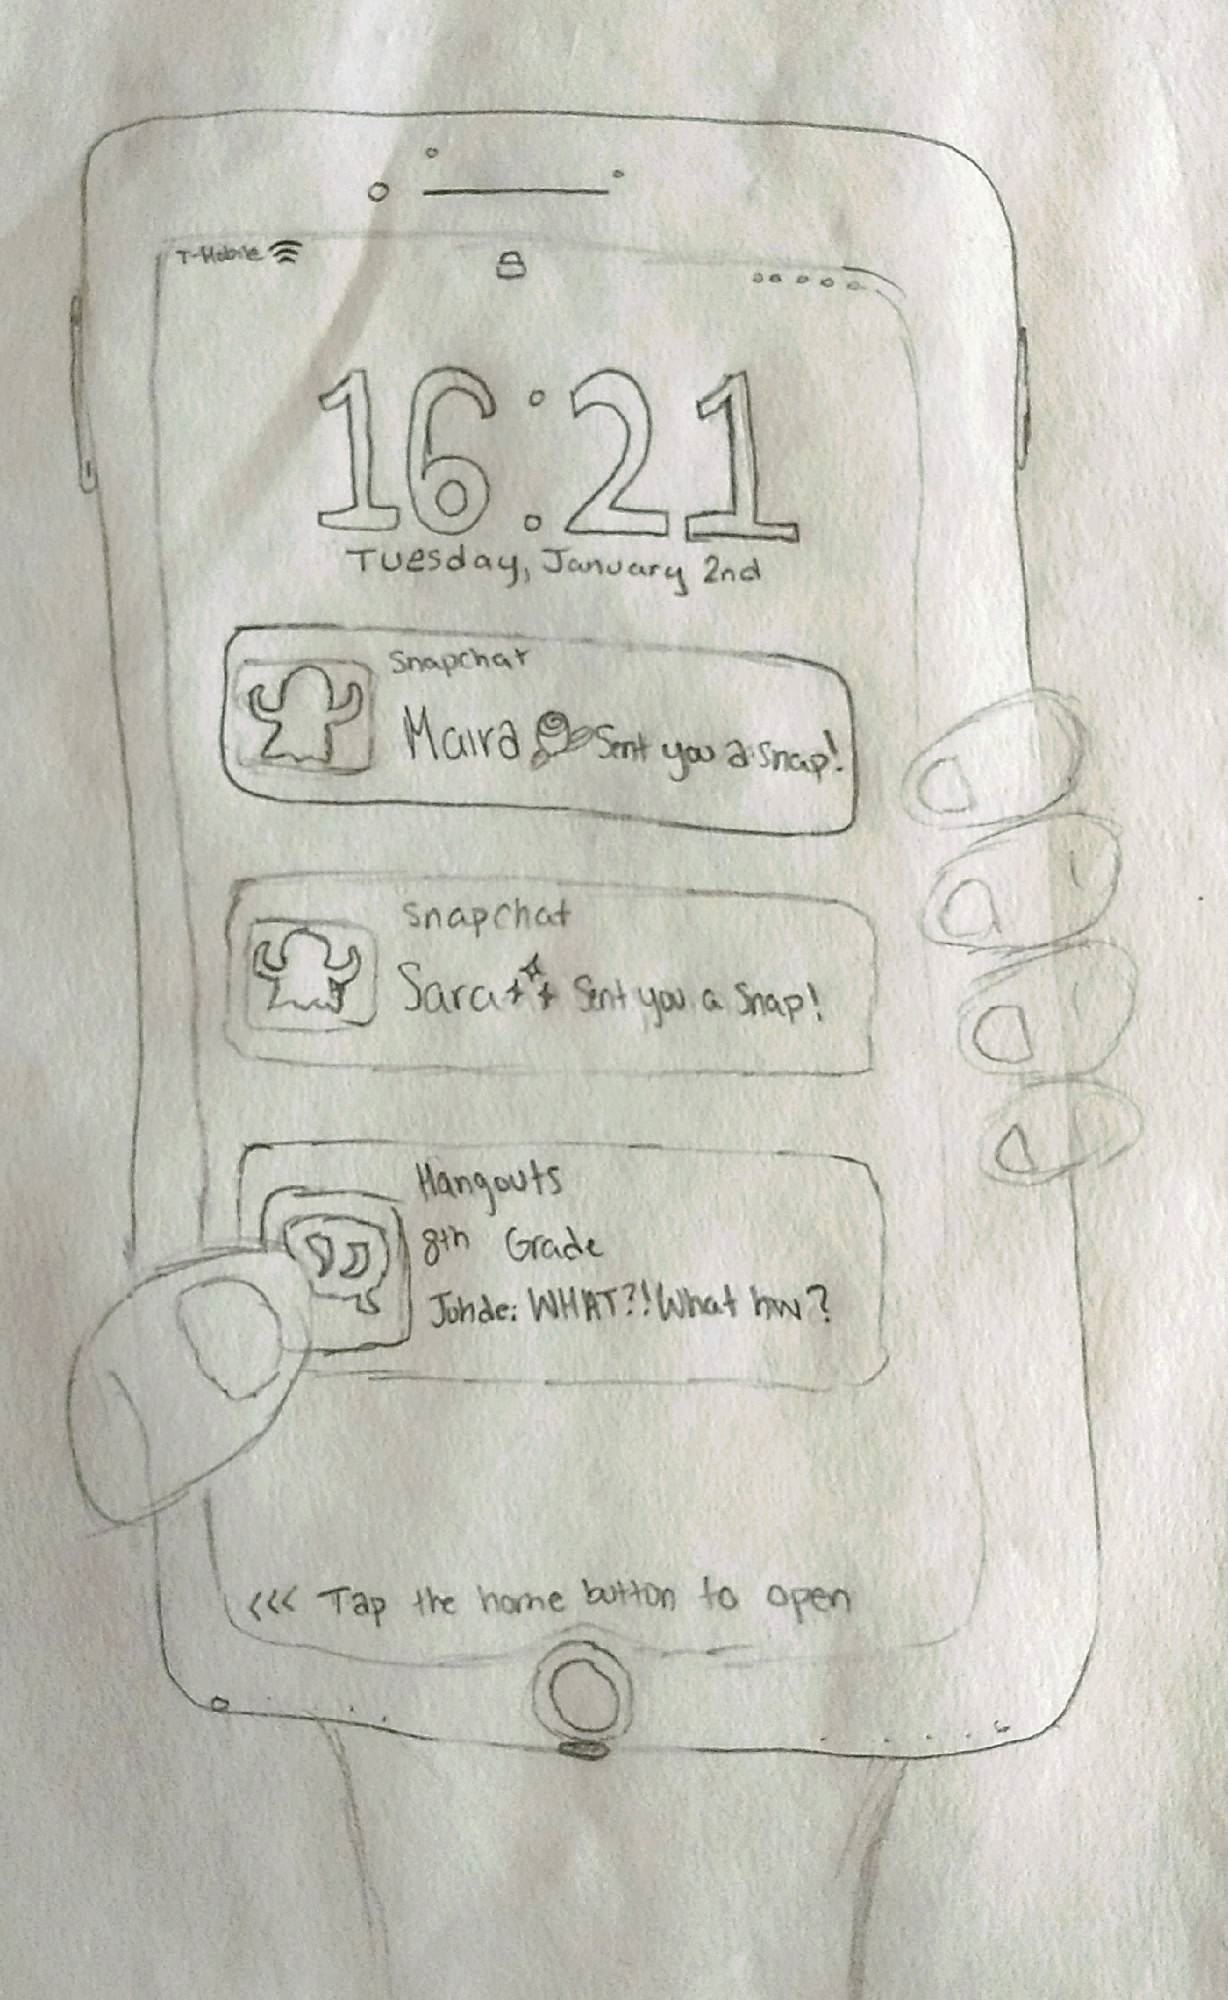 T-Mobile
16:21
Tuesday, January 2nd
Snapchat
Maira Sent you a snap!
Snapchat
Sara Sent you a Snap!
Hangouts
8th Grade
Johde: WHAT?! What hw?
<<< Tap the home button to open